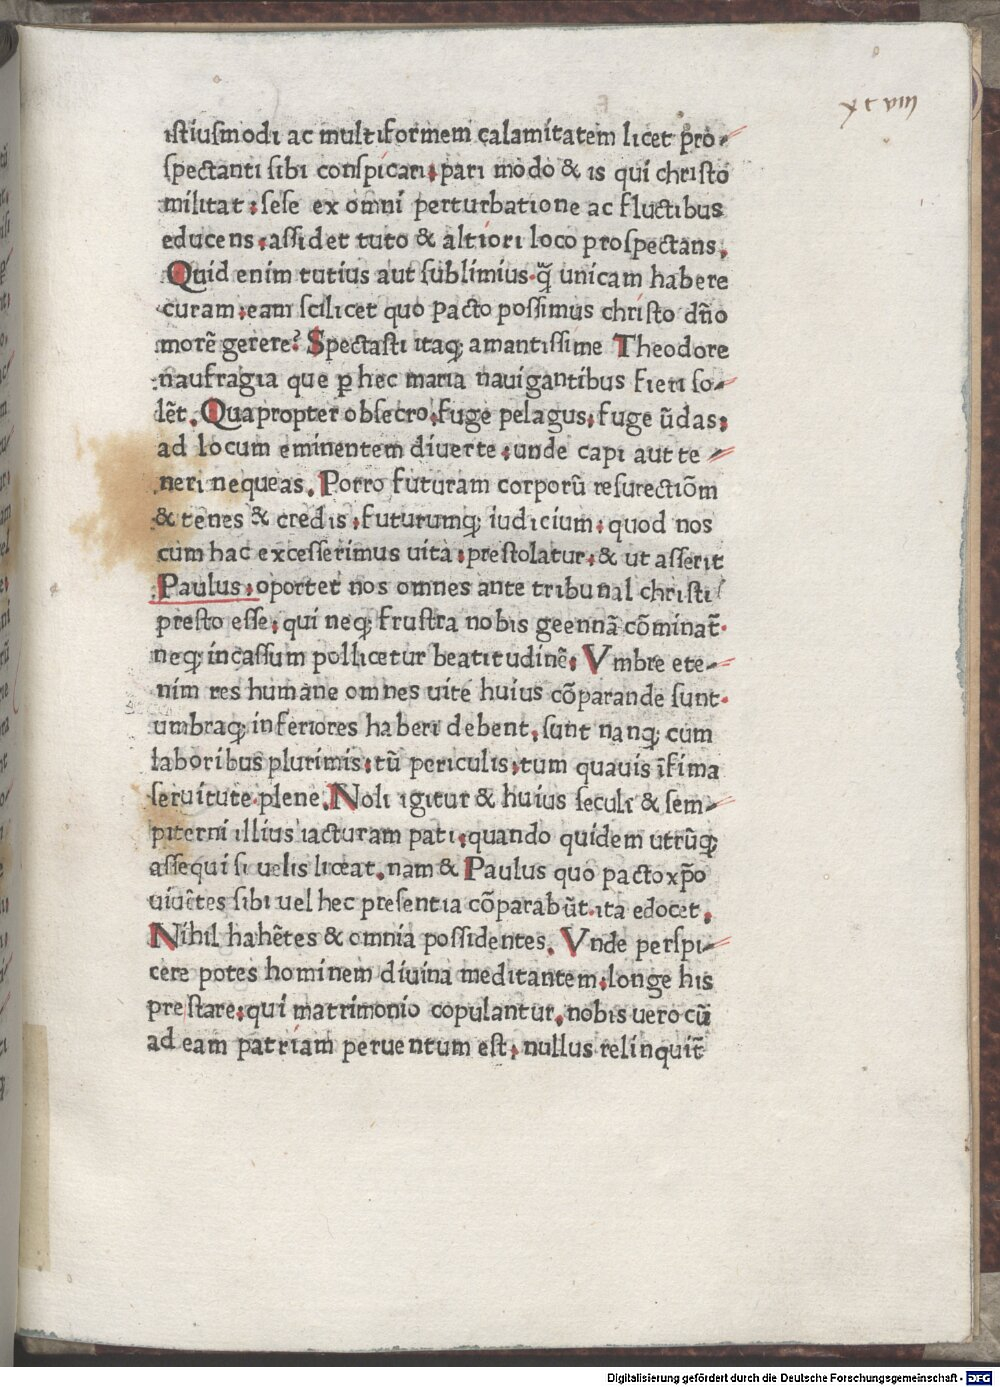 xcviii
istiusmodi ac multiformem calamitatem licet pro⸗
spectanti sibi conspicari: pari modo & is qui christo
militat: sese ex omni perturbatione ac fluctibus
educens: assidet tuto & altiori loco prospectans.
Quid enim tutius aut sublimius· q̃ unicam habere
curam: eam scilicet quo pacto possimus christo dño
morẽ gerere? Spectasti itaq; amantissime Theodore
naufragia que ꝑ hec maria nauigantibus fieri so⸗
lẽt. Quapropter obsecro: fuge pelagus: fuge ũdas:
ad locum eminentem diuerte: unde capi aut te⸗
neri nequeas. Porro futuram corporũ resurectiõm
& tenes & credis: futurumq; iudicium: quod nos
cum hac excesserimus uita: prestolatur: & ut asserit
Paulus: oportet nos omnes ante tribunal christi
presto esse: qui neq; frustra nobis geennã cõminat̃·
neq; incassum pollicetur beatitudinẽ: Vmbre ete⸗
nim res humane omnes uite huius cõparande sunt·
umbraq; inferiores haberi debent. sunt nanq; cum
laboribus plurimis: tũ periculis: tum quauis ĩfima
seruitute· plene. Noli igitur & huius seculi & sem⸗
piterni illius iacturam pati: quando quidem utrũq;
assequi si uelis liceat. nam & Paulus quo pacto xp̃o
uiuẽtes sibi uel hec presentia cõparabũt· ita edocet.
Nihil habẽtes & omnia possidentes. Vnde perspi⸗
cere potes hominem diuina meditantem: longe his
prestare: qui matrimonio copulantur. nobis uero cũ
ad eam patriam peruentum est: nullus relinquit̃
Digitalisierung gefördert durch die Deutsche Forschungsgemeinschaft - DFG